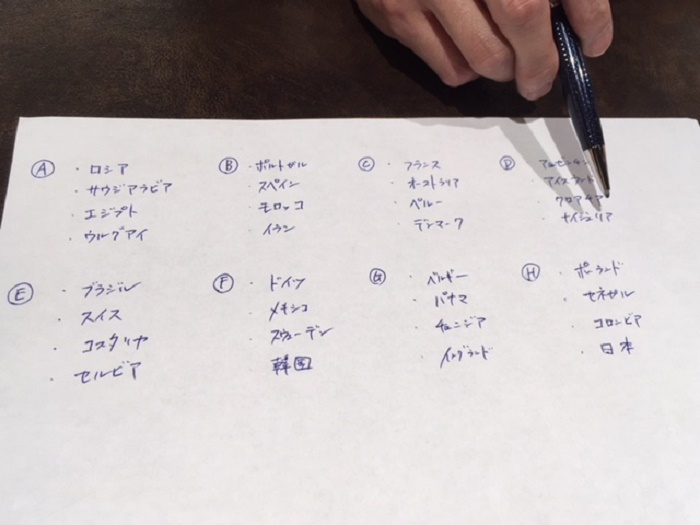 A
・ロシア
・サウジアラビア
・エジプト
・ウルグアイ
B
・ポルトガル
・スペイン
・モロッコ
・イラン
C
・フランス
・オーストラリア
・ペルー
・デンマーク
D
・アルゼンチン
・アイスランド
・クロアチア
・ナイジェリア
E
・ブラジル
・スイス
・コスタリカ
・セルビア
F
・ドイツ
・メキシコ
・スウェーデン
・韓国
G
・ベルギー
・パナマ
・チュニジア
・イングランド
H
・ポーランド
・セネガル
・コロンビア
・日本